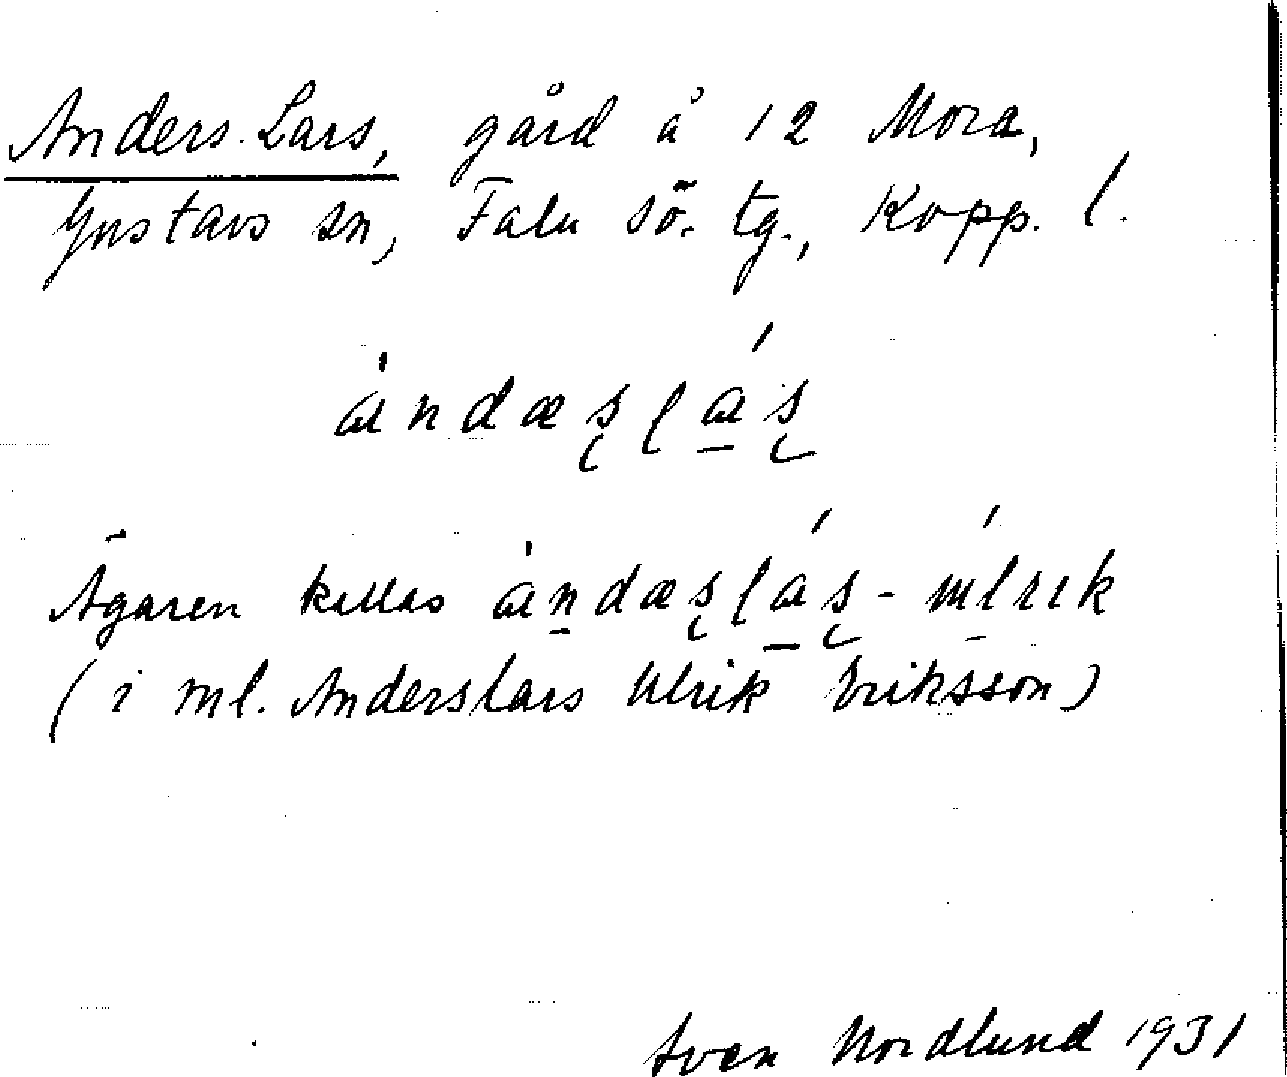 Anders-Lars, gård å 12 Mora,
Gustavs sn, Falu sö. tg., Kopp. l.
àndæʂ lá̱ʂ
Ägaren kallas àn̠dæʂlá̱ʂ-
(i ml. Anderslars Ulrik Eriksson)
Sven Nordlund 1931